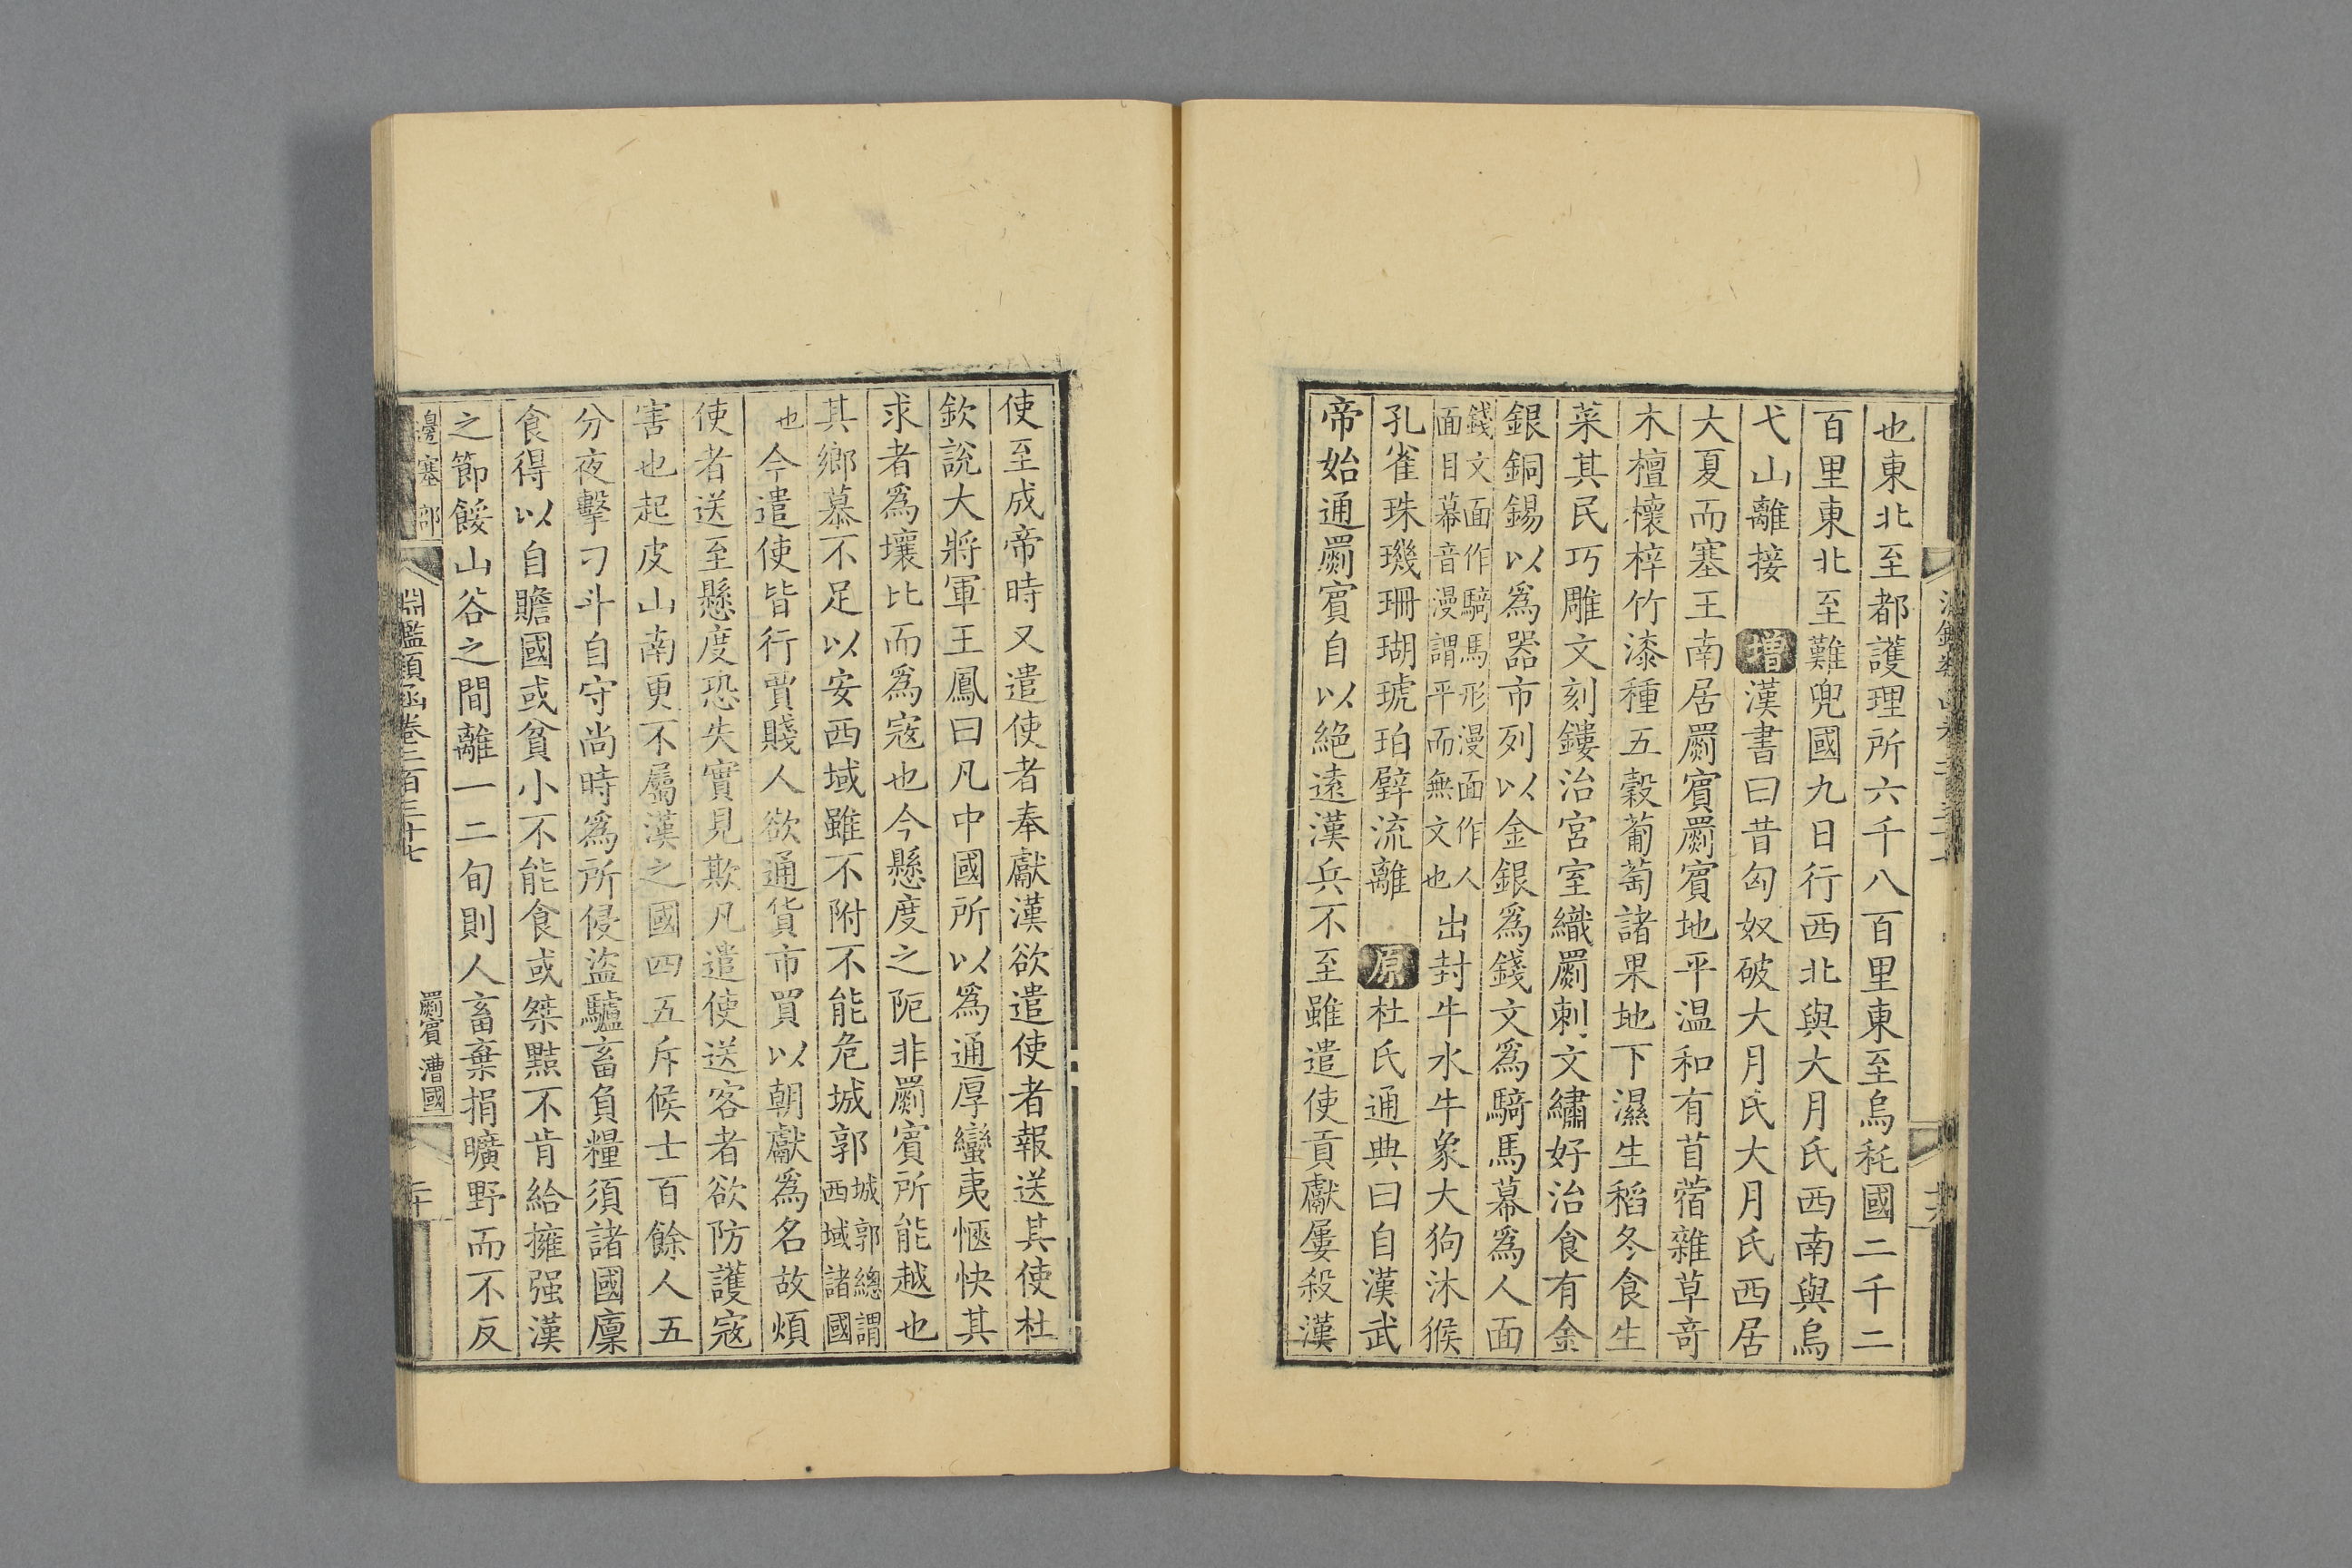 也東北至都護理所六千八百里東至烏秅國二千二
百里東北至難兜國九日行西北與大月氏西南與烏
弋山離接 增漢書曰昔匈奴破大月氏大月氏西居
大夏而塞王南居罽賓罽賓地平温和有苜蓿雜草竒
木檀櫰梓竹漆種五穀葡萄諸果地下濕生稻冬食生
菜其民巧雕文刻鏤治宮室織罽刺文繡好治食有金
銀銅錫以爲器市列以金銀爲錢文爲騎馬幕爲人面
錢文面作騎馬形漫面作人
面目幕音漫謂平而無文也
出封牛水牛象大狗沐猴
孔雀珠璣珊瑚琥珀璧流離 原杜氏通典曰自漢武
帝始通罽賓自以絶遠漢兵不至雖遣使貢獻屢殺漢
使至成帝時又遣使者奉獻漢欲遣使者報送其使杜
欽說大將軍王鳳曰凡中國所以爲通厚蠻夷愜快其
求者爲壤比而爲寇也今懸度之阨非罽賓所能越也
其鄉慕不足以安西域雖不附不能危城郭
城郭總謂
西域諸國
也
今遣使皆行賈賤人欲通貨市買以朝獻爲名故煩
使者送至懸度恐失實見欺凡遣使送客者欲防護寇
害也起皮山南更不屬漢之國四五斥候士百餘人五
分夜擊刁斗自守尚時爲所侵盜驢畜負糧須諸國廩
食得以自贍國或貧小不能食或桀黠不肯給擁强漢
之節餒山谷之間離一二旬則人畜棄捐曠野而不反
邊塞部
淵鑑類函卷二百三十七
罽賓 漕國
二十